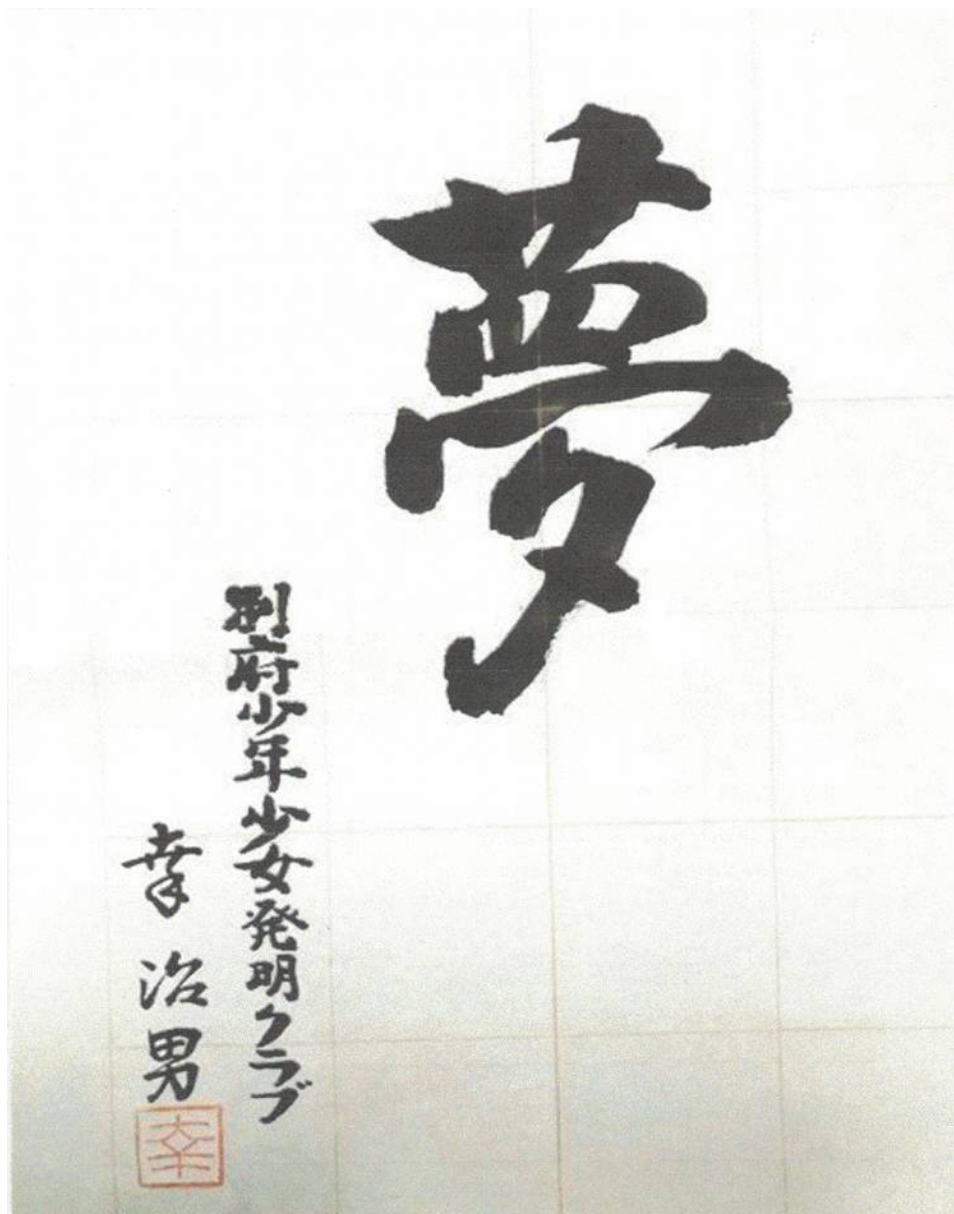 夢
別府少年少女発明クラブ
幸 治男
幸